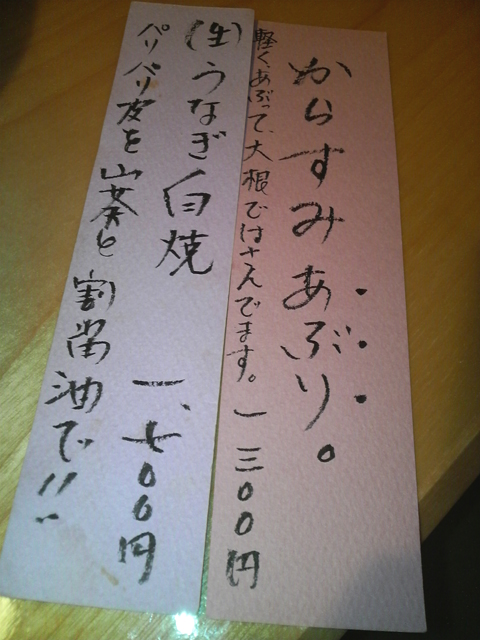 からすみあぶり。
軽く、あぶって、大根ではさんでます。一三〇〇円
(生)うなぎ白焼 一、七〇〇円
パリパリ皮を山葵と割醤油で!!